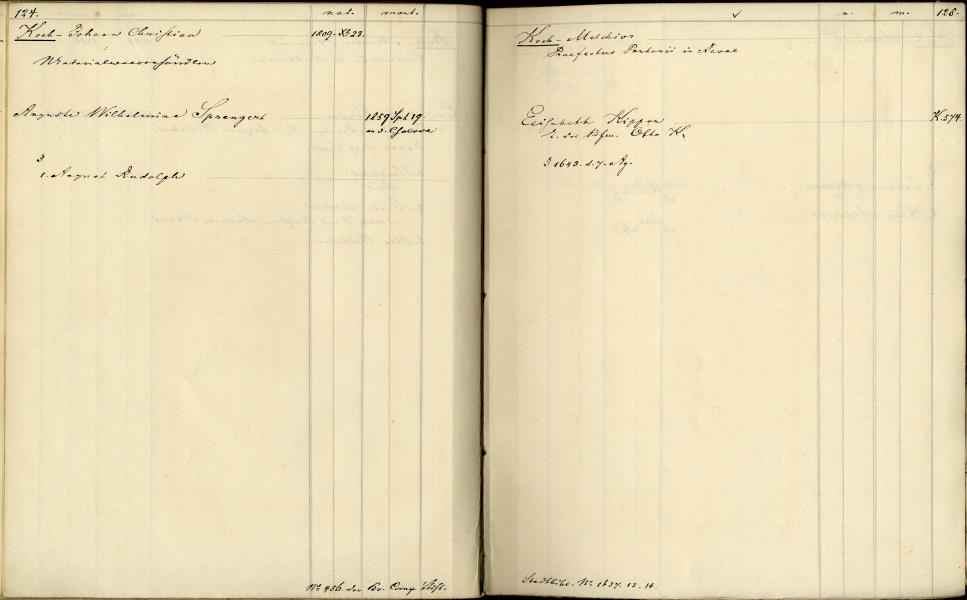 124. nat. mort.
Koch - Johann Christian 1809. Xb 23.
Materialwaarenhändler
Auguste Wilhelmine Sprengert 1859 Spt 19
an d. Cholera
3
1. August Rudolph
No 456 der Bv. Comp.
n. m. 125.
Koch - Melchior
Praefectus Portorii in Reval
Elisabeth Kippen K. 574.
T. des Bfm. Otto K.
3 1643. d. 7. Ag.
Stadtbibl. No 13. 14.